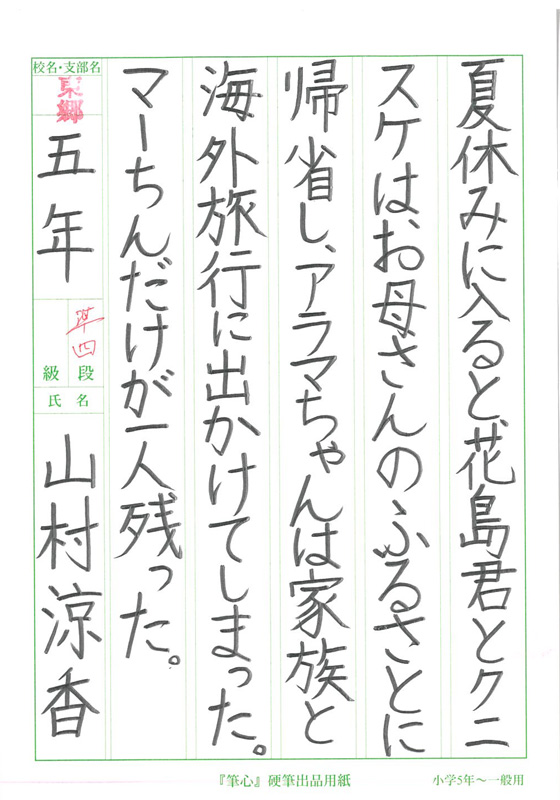 夏休みに入ると、花島君とクニ
スケは、お母さんのふるさとに
帰省し、アラマちゃんは家族と
海外旅行に出かけてしまった。
マーちんだけが一人残った。
校名・支部名
東郷
五年
準四
段
級
氏名
山村涼香
『筆心』硬筆出品用紙
小学5年〜一般用